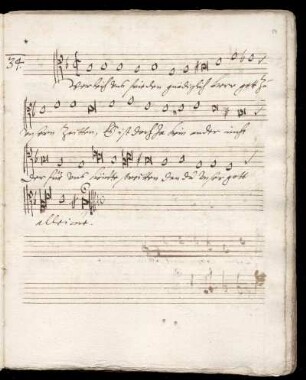 34.
Verleih uns frieden gnädiglich herr gott zu
unsern Zeitten, Es ist doch Ja kein ander nicht
der für uns könte streitten, den du unser gott
alleine.